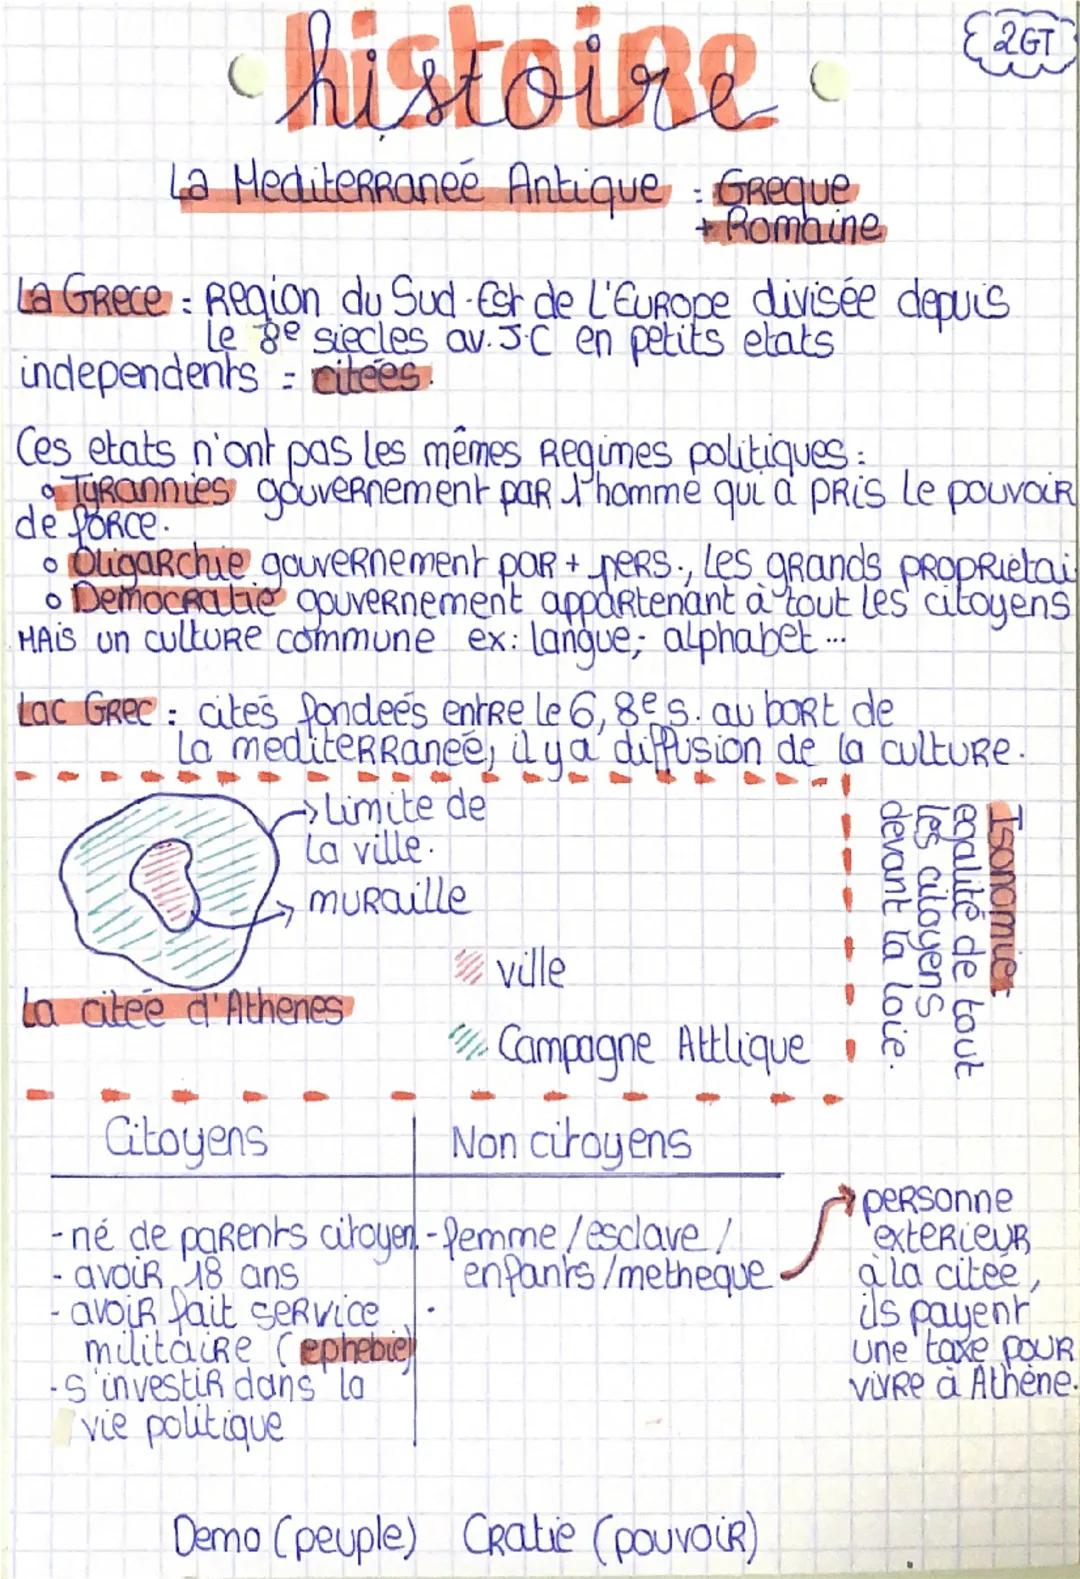 histoire
2GT
La Mediterraneé Antique : Greque
+ Romaine
La Grece : Region du Sud-Est de l'Europe divisée depuis
le 8e siecles av. J.C en petits etats
independents = citées.
Ces etats n'ont pas les mêmes Regimes politiques :
Tyrannies gouvernement par l'homme qui a pris le pouvoir
de force.
Oligarchie gouvernement par + pers., les grands proprietai
Democratie gouvernement appartenant à tout les citoyens
MAIS un culture commune ex: langue; alphabet ...
Lac Grec : cités fondeés entre le 6, 8e s. au bort de
la mediterraneé, il y a diffusion de la culture.
Limite de
la ville.
muraille
ville
La citeé d'Athenes
Campagne Attlique
Isonomie:
egalité de tout
les citoyens
devant la loie.
Citoyens
Non citoyens
- né de parents citoyen.
- avoir 18 ans
- avoir fait service
militaire (ephebie)
- s'investir dans la
vie politique
- femme / esclave /
enfants / metheque
personne
exterieur
à la citée,
ils payent
une taxe pour
vivre à Athène.
Demo (peuple) Cratie (pouvoir)